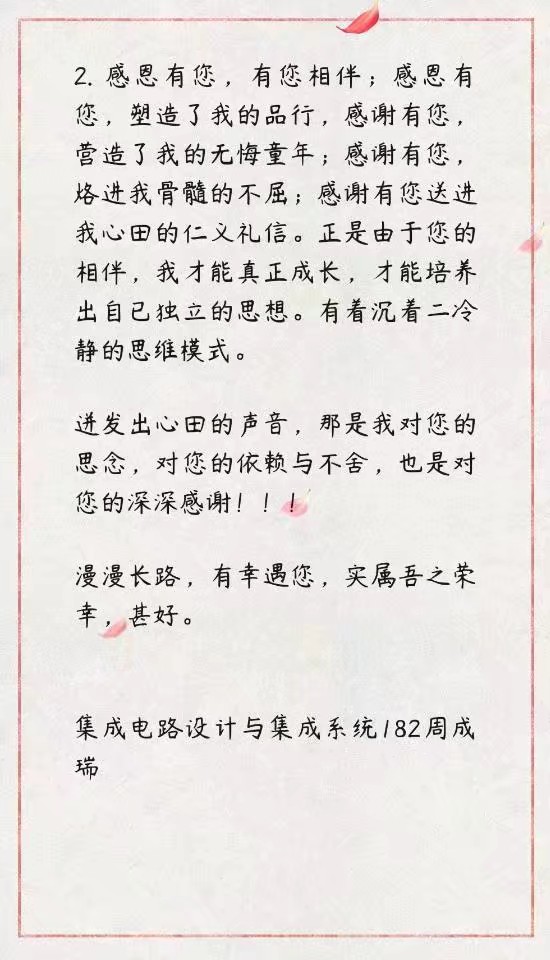 2. 感恩有您，有您相伴；感恩有
您，塑造了我的品行，感谢有您，
营造了我的无悔童年；感谢有您，
烙进我骨髓的不屈；感谢有您送进
我心田的仁义礼信。正是由于您的
相伴，我才能真正成长，才能培养
出自已独立的思想。有着沉着二冷
静的思维模式。
迸发出心田的声音，那是我对您的
思念，对您的依赖与不舍，也是对
您的深深感谢！！！
漫漫长路，有幸遇您，实属吾之荣
幸，甚好。
集成电路设计与集成系统182周成
瑞